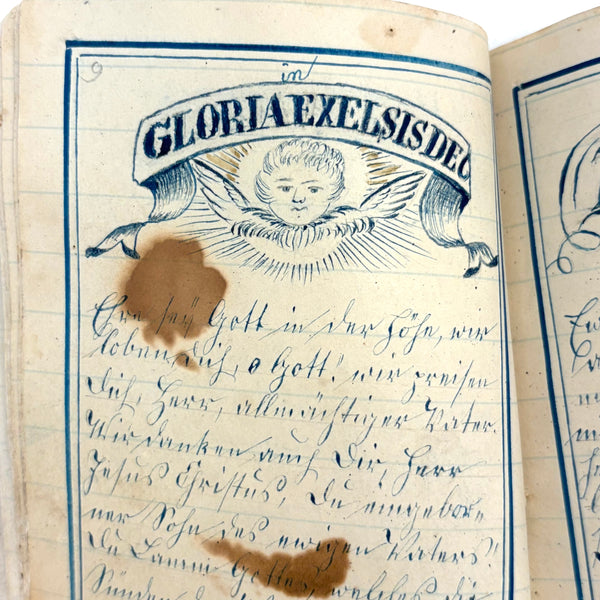 9
in
GLORIA EXELSIS DEO
Ehre seÿ Gott in der Höhe, wir
loben Dich, o Gott! wir preisen
Dich, Herr, allmächtiger Vater.
Wir danken auch Dir, Herr
Jesus Christus, Du eingebore
ner Sohn des ewigen Vaters!
Du Lamm Gottes, welches die
Sünden